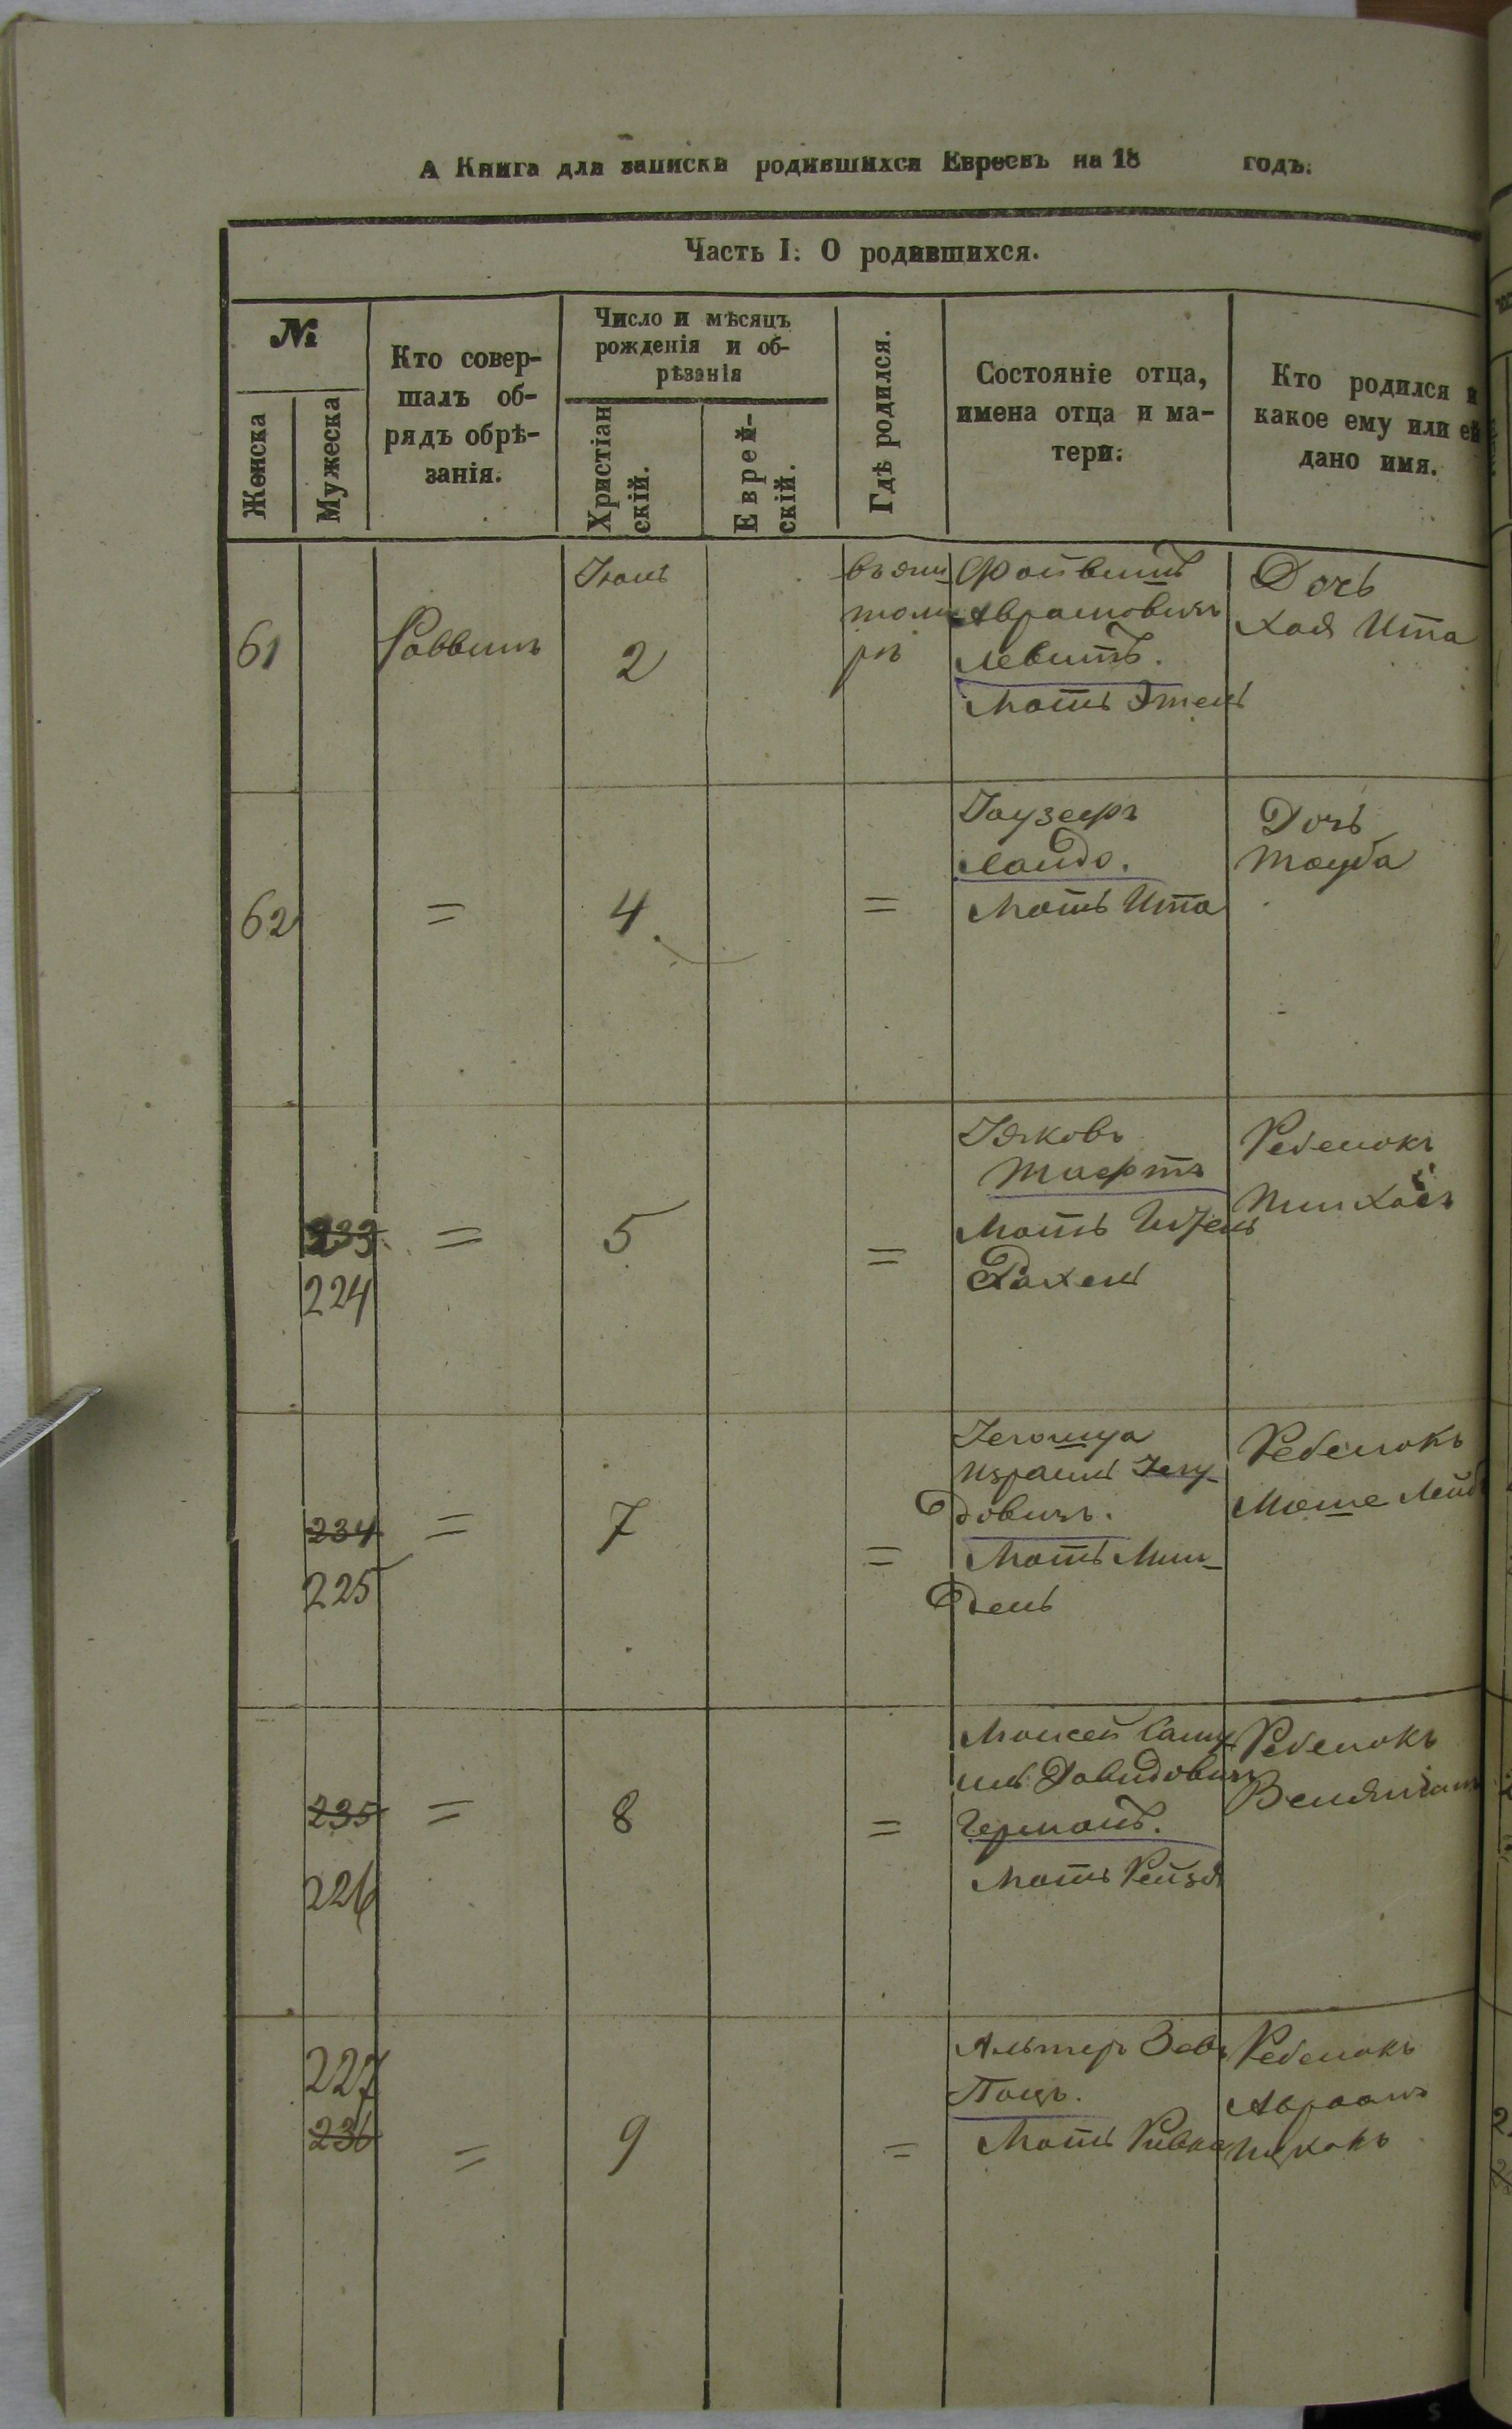 А Книга для записки родившихся Евреевъ на 18 годъ.
Часть I. О родившихся.
№
Женска
Мужеска
Кто совер-
шалъ об-
рядъ обрѣ-
занія.
Число и мѣсяцъ
рожденія и об-
рѣзанія
Христіан
скій.
Еврей-
скій.
Гдѣ родился.
Состояніе отца,
имена отца и ма-
тери.
Кто родился и
какое ему или ей
дано имя.
61
Раввинъ
2
въ жи
томи
рѣ
Файвишъ
Аврамовичъ
Левитъ.
Мать Этель
Дочь
Хая Ита
62
=
4
=
Ландо.
Мать Ита
Дочь
Тауба
233
224
=
5
=
Іяковъ
Мать
Рахель
Ребенокъ
Пинхасъ
234
225
=
7
=
Израиль Іегу-
довичъ.
Мать Мин-
дель
Ребенокъ
Моше Лейб
235
226
=
8
=
Моисей Саму
иль Давидовичъ
Германъ.
Мать Рейзя
Ребенокъ
Веніяминъ
227
236
=
9
=
Альтеръ Зевъ
Пацъ.
Мать Ривка
Ребенокъ
Авраамъ
Ицхокъ